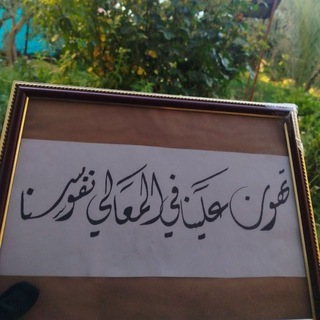 تهون علينا في المعالي نفوسنا